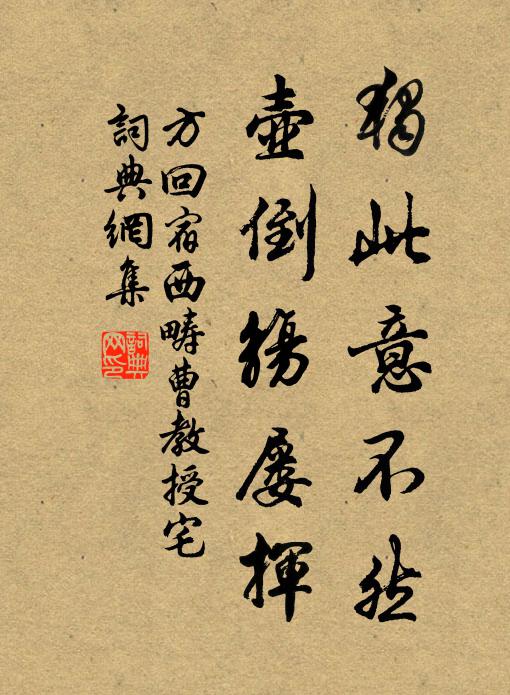 獨此意不然
壺倒觴屢揮
方回宿西疇曹教授宅
詞典網集
詞典網印